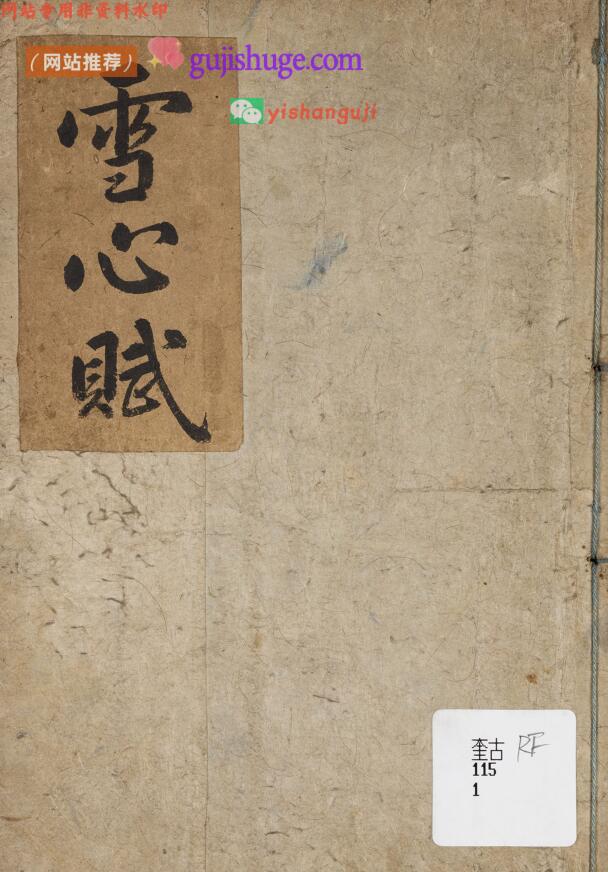 网站专用非资料水印
（网站推荐）
gujishuge.com
yishanguji
雪心賦
奎古 RF
115
1